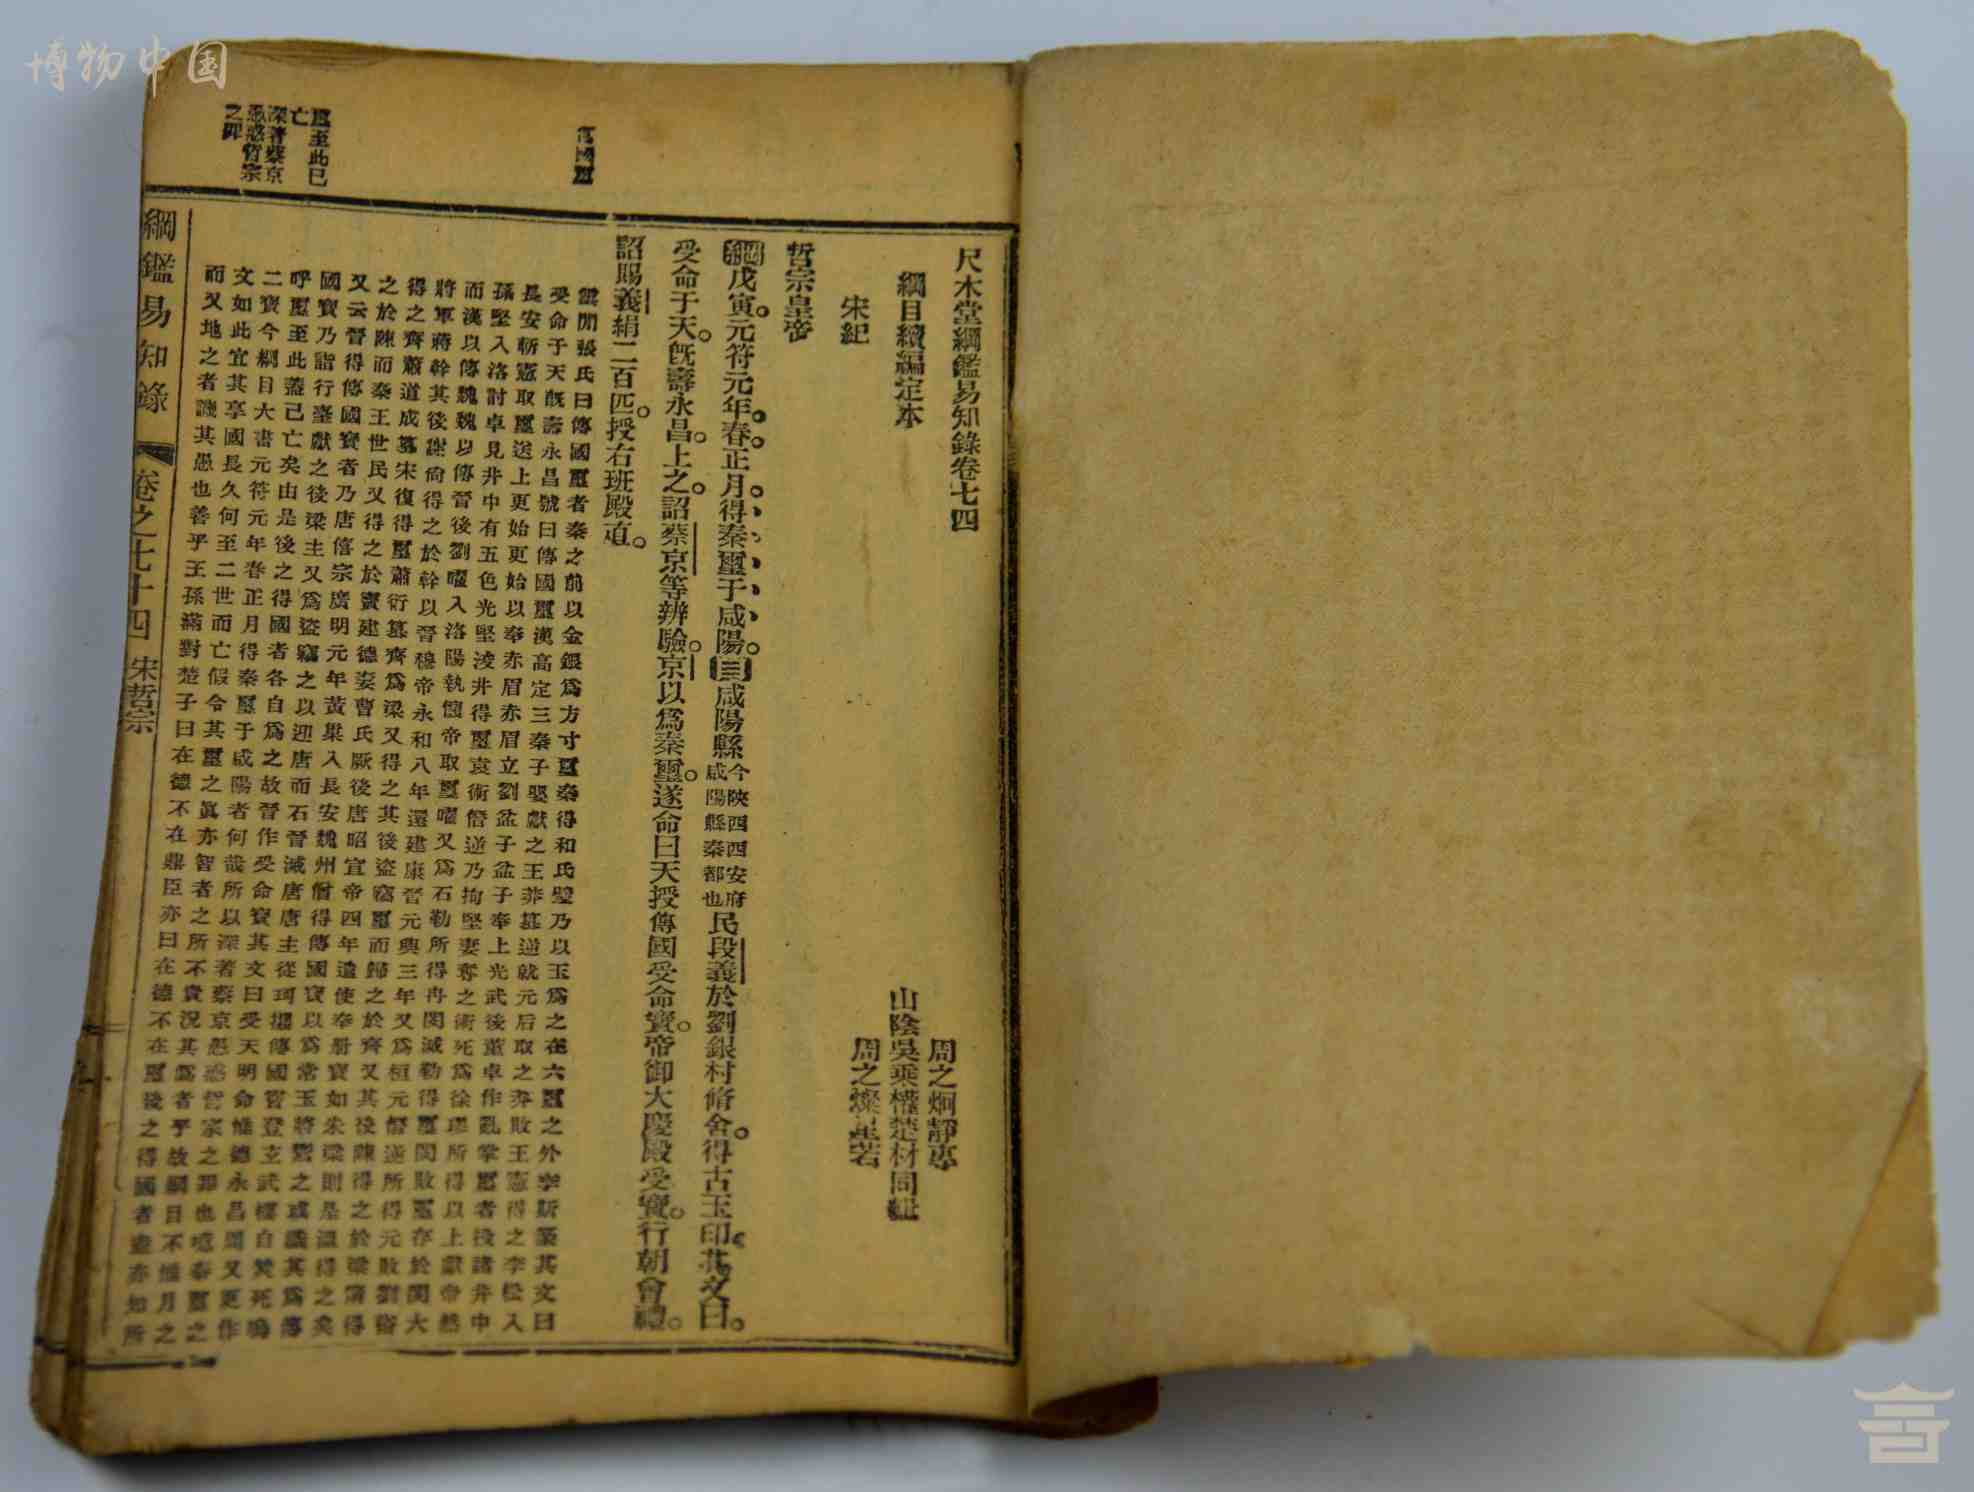 博物中国
尺木堂綱鑑易知錄卷七四
周之炯靜專
綱目續編定本
山陰吳乘權楚材同輯
宋紀
周之燦星若
哲宗皇帝
綱戊寅。元符元年。春。正月。得秦璽于咸陽。目咸陽縣今陝西西安府咸陽縣秦都也民段義於劉銀村脩舍。得古玉印。其文曰。
受命于天。旣壽永昌。上之。詔蔡京等辨驗。京以爲秦璽。遂命曰天授傳國受命寶。帝御大慶殿受寶。行朝會禮。
詔賜義絹二百匹。授右班殿直。
雲間張氏曰傳國璽者秦之前以金銀爲方寸璽秦得和氏璧乃以玉爲之在六璽之外李斯篆其文曰
受命于天旣壽永昌號曰傳國璽漢高定三秦子嬰獻之王莽簒逆就元后取之莽敗王憲得之李松入
長安斬憲取璽送上更始更始以奉赤眉赤眉立劉盆子盆子奉上光武後董卓作亂掌璽者投諸井中
孫堅入洛討卓見井中有五色光堅浚井得璽袁術僭逆乃拘堅妻奪之術死爲徐璆所得以上獻帝然
而漢以傳魏魏以傳晉後劉曜入洛陽執懷帝取璽曜又爲石勒所得冉閔滅勒得璽閔敗璽存於閔大
將軍蔣幹其後謝尙得之於幹以晉穆帝永和八年還建康晉元興三年又爲桓元僭逆所得元敗劉裕
得之齊蕭道成簒宋復得璽蕭衍簒齊爲梁又得之其後盜竊璽而歸之於齊又其後陳得之於梁隋得
之於陳而秦王世民又得之於竇建德妻曹氏厥後唐昭宣帝四年遣使奉册寶如朱梁則是溫得之矣
又云晉得傳國寶者乃唐僖宗廣明元年黃巢入長安魏州僧得傳國寶以爲常玉將鬻之或識其爲傳
國寶乃詣行臺獻之後梁主又爲盜竊之以迎唐而石晉滅唐唐主從珂攜傳國寶登玄武樓自焚死嗚
呼璽至此蓋已亡矣由是後之得國者各自爲之故晉作受命寶其文曰受天明命惟德永昌周又更作
二寶今綱目大書元符元年春正月得秦璽于咸陽者何哉所以深著蔡京愚惑哲宗之罪也噫秦璽之
文如此宜其享國長久何至二世而亡假令其璽之眞亦智者之所不貴況其僞者乎故綱目不惟月之
而又地之者譏其愚也善乎王孫滿對楚子曰在德不在鼎臣亦曰在德不在璽後之得國者盍亦知所
璽至此已
亡
深著蔡京
愚惑哲宗
之罪
綱鑑易知錄 卷之七十四 宋哲宗